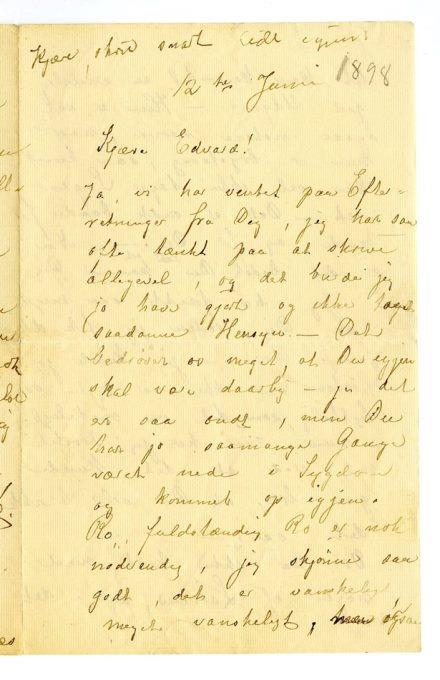 Kjære, skriv snart igjen!
12te Juni 1898
Kjære Edvard!
Ja, vi har ventet paa Efter=
retninger fra Dig, jeg har saa
ofte tænkt paa at skrive
allígevel, og det burde jeg
jo have gjort og ikke taget
saadanne Hensyn. — Det
bedrøver os meget, at Du igjen
skal være daarlig — ja det
er saa ondt, men Du
har jo saamange Gange
været nede i Sygdom
og kommet op igjen.
Ro, fuldstændig Ro er nok
nødvendig, jeg skjønner saa
godt, det er vanskeligt
meget vanskeligt, men ogsaa